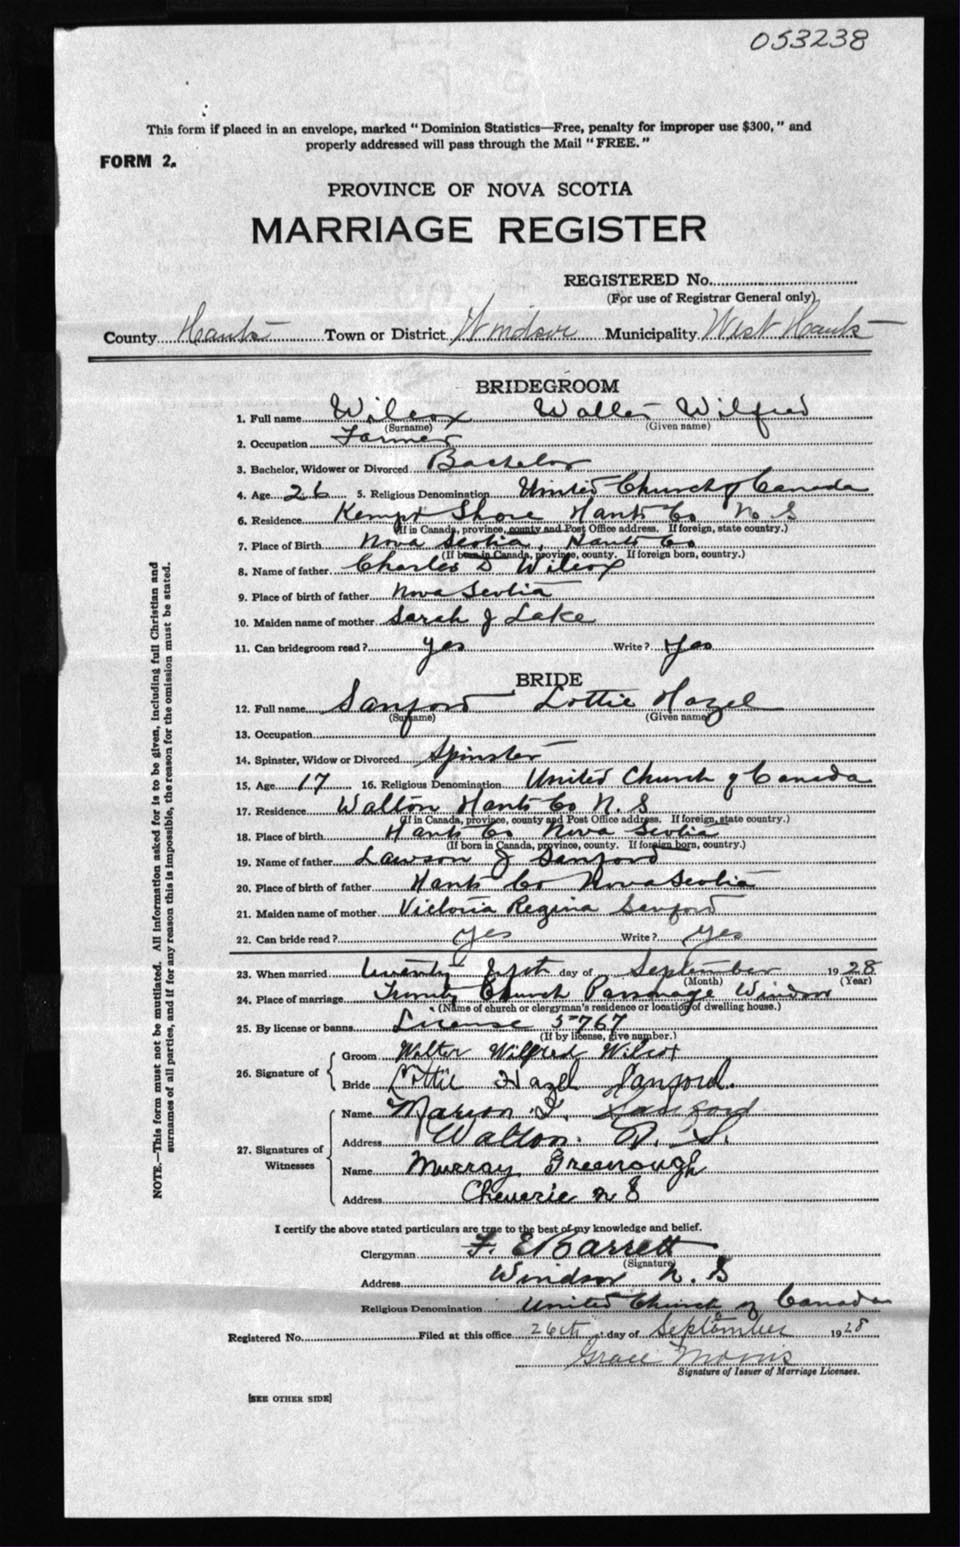 053238
This form if placed in an envelope, marked "Dominion Statistics—Free, penalty for improper use $300," and
properly addressed will pass through the Mail "FREE."
FORM 2.
PROVINCE OF NOVA SCOTIA
MARRIAGE REGISTER
REGISTERED No.
(For use of Registrar General only)
County Hants Town or District Windsor Municipality West Hants
BRIDEGROOM
1. Full name Wilcox Walter Wilfred
(Surname) (Given name)
2. Occupation Farmer
3. Bachelor, Widower or Divorced Bachelor
4. Age 26 5. Religious Denomination United Church of Canada
6. Residence Kempt Shore Hants Co N. S
(If in Canada, province, county and Post Office address. If foreign, state country.)
7. Place of Birth Nova Scotia, Hants Co
(If born in Canada, province, county. If foreign born, country.)
8. Name of father Charles D Wilcox
9. Place of birth of father Nova Scotia
10. Maiden name of mother Sarah J Lake
11. Can bridegroom read? yes Write? yes
BRIDE
12. Full name Sanford Lottie Hazel
(Surname) (Given name)
13. Occupation
14. Spinster, Widow or Divorced Spinster
15. Age 17 16. Religious Denomination United Church of Canada
17. Residence Walton Hants Co N. S
(If in Canada, province, county and Post Office address. If foreign, state country.)
18. Place of birth Hants Co Nova Scotia
(If born in Canada, province, county. If foreign born, country.)
19. Name of father Lawson J Sanford
20. Place of birth of father Hants Co Nova Scotia
21. Maiden name of mother Victoria Regina Sanford
22. Can bride read? yes Write? yes
23. When married twenty day of September 1928
(Month) (Year)
24. Place of marriage Trinity Church Parsonage Windsor
(Name of church or clergyman's residence or location of dwelling house.)
25. By license or banns License 5767
(If by license, give number.)
26. Signature of
Groom Walter Wilfred Wilcox
Bride Lottie Hazel Sanford.
27. Signatures of Witnesses
Name Marion Sanford
Address Walton. N. S.
Name Murray Greenough
Address Cheverie N S
I certify the above stated particulars are true to the best of my knowledge and belief.
Clergyman F. E Barrett
(Signature)
Address Windsor N. S
Religious Denomination United Church of Canada
Registered No. Filed at this office 26th day of September 1928
Grace Morris
Signature of Issuer of Marriage Licenses.
[SEE OTHER SIDE]
NOTE.—This form must not be mutilated. All information asked for is to be given, including full Christian and
surnames of all parties, and if for any reason this is impossible, the reason for the omission must be stated.